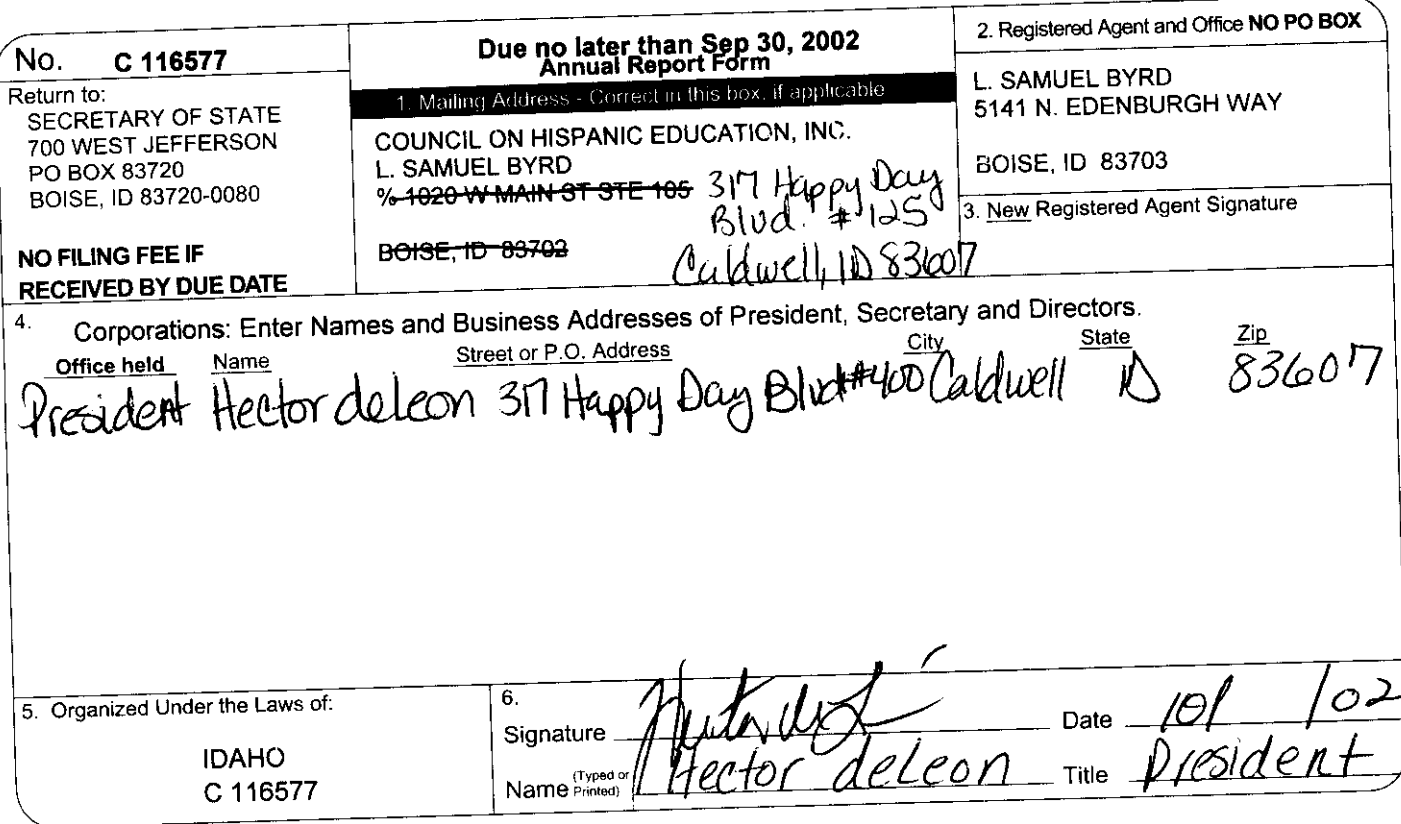 No. C 116577
Return to:
SECRETARY OF STATE
700 WEST JEFFERSON
PO BOX 83720
BOISE, ID 83720-0080
NO FILING FEE IF
RECEIVED BY DUE DATE
Due no later than Sep 30, 2002
Annual Report Form
1. Mailing Address - Correct in this box, if applicable
COUNCIL ON HISPANIC EDUCATION, INC.
L. SAMUEL BYRD
% 1020 W MAIN ST STE 105 317 Happy Day
Blvd. #125
BOISE, ID 83702
Caldwell, ID 83607
2. Registered Agent and Office NO PO BOX
L. SAMUEL BYRD
5141 N. EDENBURGH WAY
BOISE, ID 83703
3. New Registered Agent Signature
4. Corporations: Enter Names and Business Addresses of President, Secretary and Directors.
Office held Name Street or P.O. Address City State Zip
President Hector deleon 317 Happy Day Blvd #400 Caldwell ID 83607
5. Organized Under the Laws of:
IDAHO
C 116577
6.
Signature Date 10/ /02
Name (Typed or Printed) Hector deLeon Title President